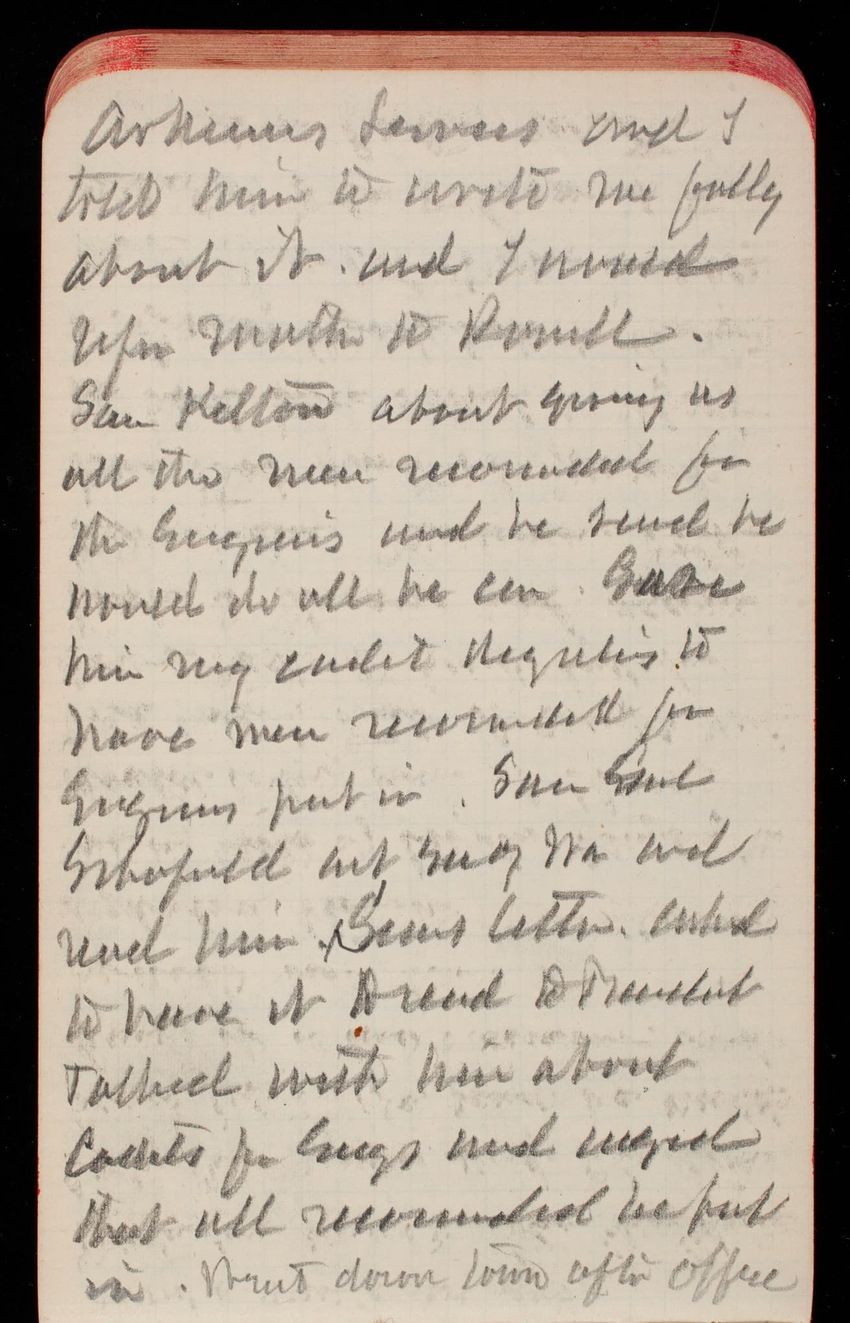 and I
told him to write me fully
about it and I would
refer matter to
Saw Kelton about giving us
all the men recomded for
the Engineers and he said he
would do all he can. Gave
him my cadet Regulations to
have men recomended for
Engineers put in. Saw Genl
Schofield act Secy War and
read him letter. Asked
to have it to read to President
Talked with him about
Cadets for Engs and urged
that all recomended be put
in. Went down town after office